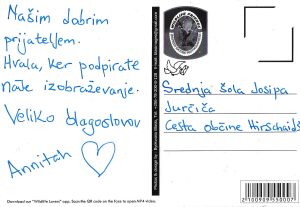 Našim dobrim
prijateljem.
Hvala, ker podpirate
naše izobraževanje.
Veliko blagoslovov
Annitah
Srednja šola Josipa
Jurčiča
Cesta občine Hirschaid 3
2 100909 550007
Download our "Wildlife Lovers" app. Scan the QR code on the front to open MP4 video.